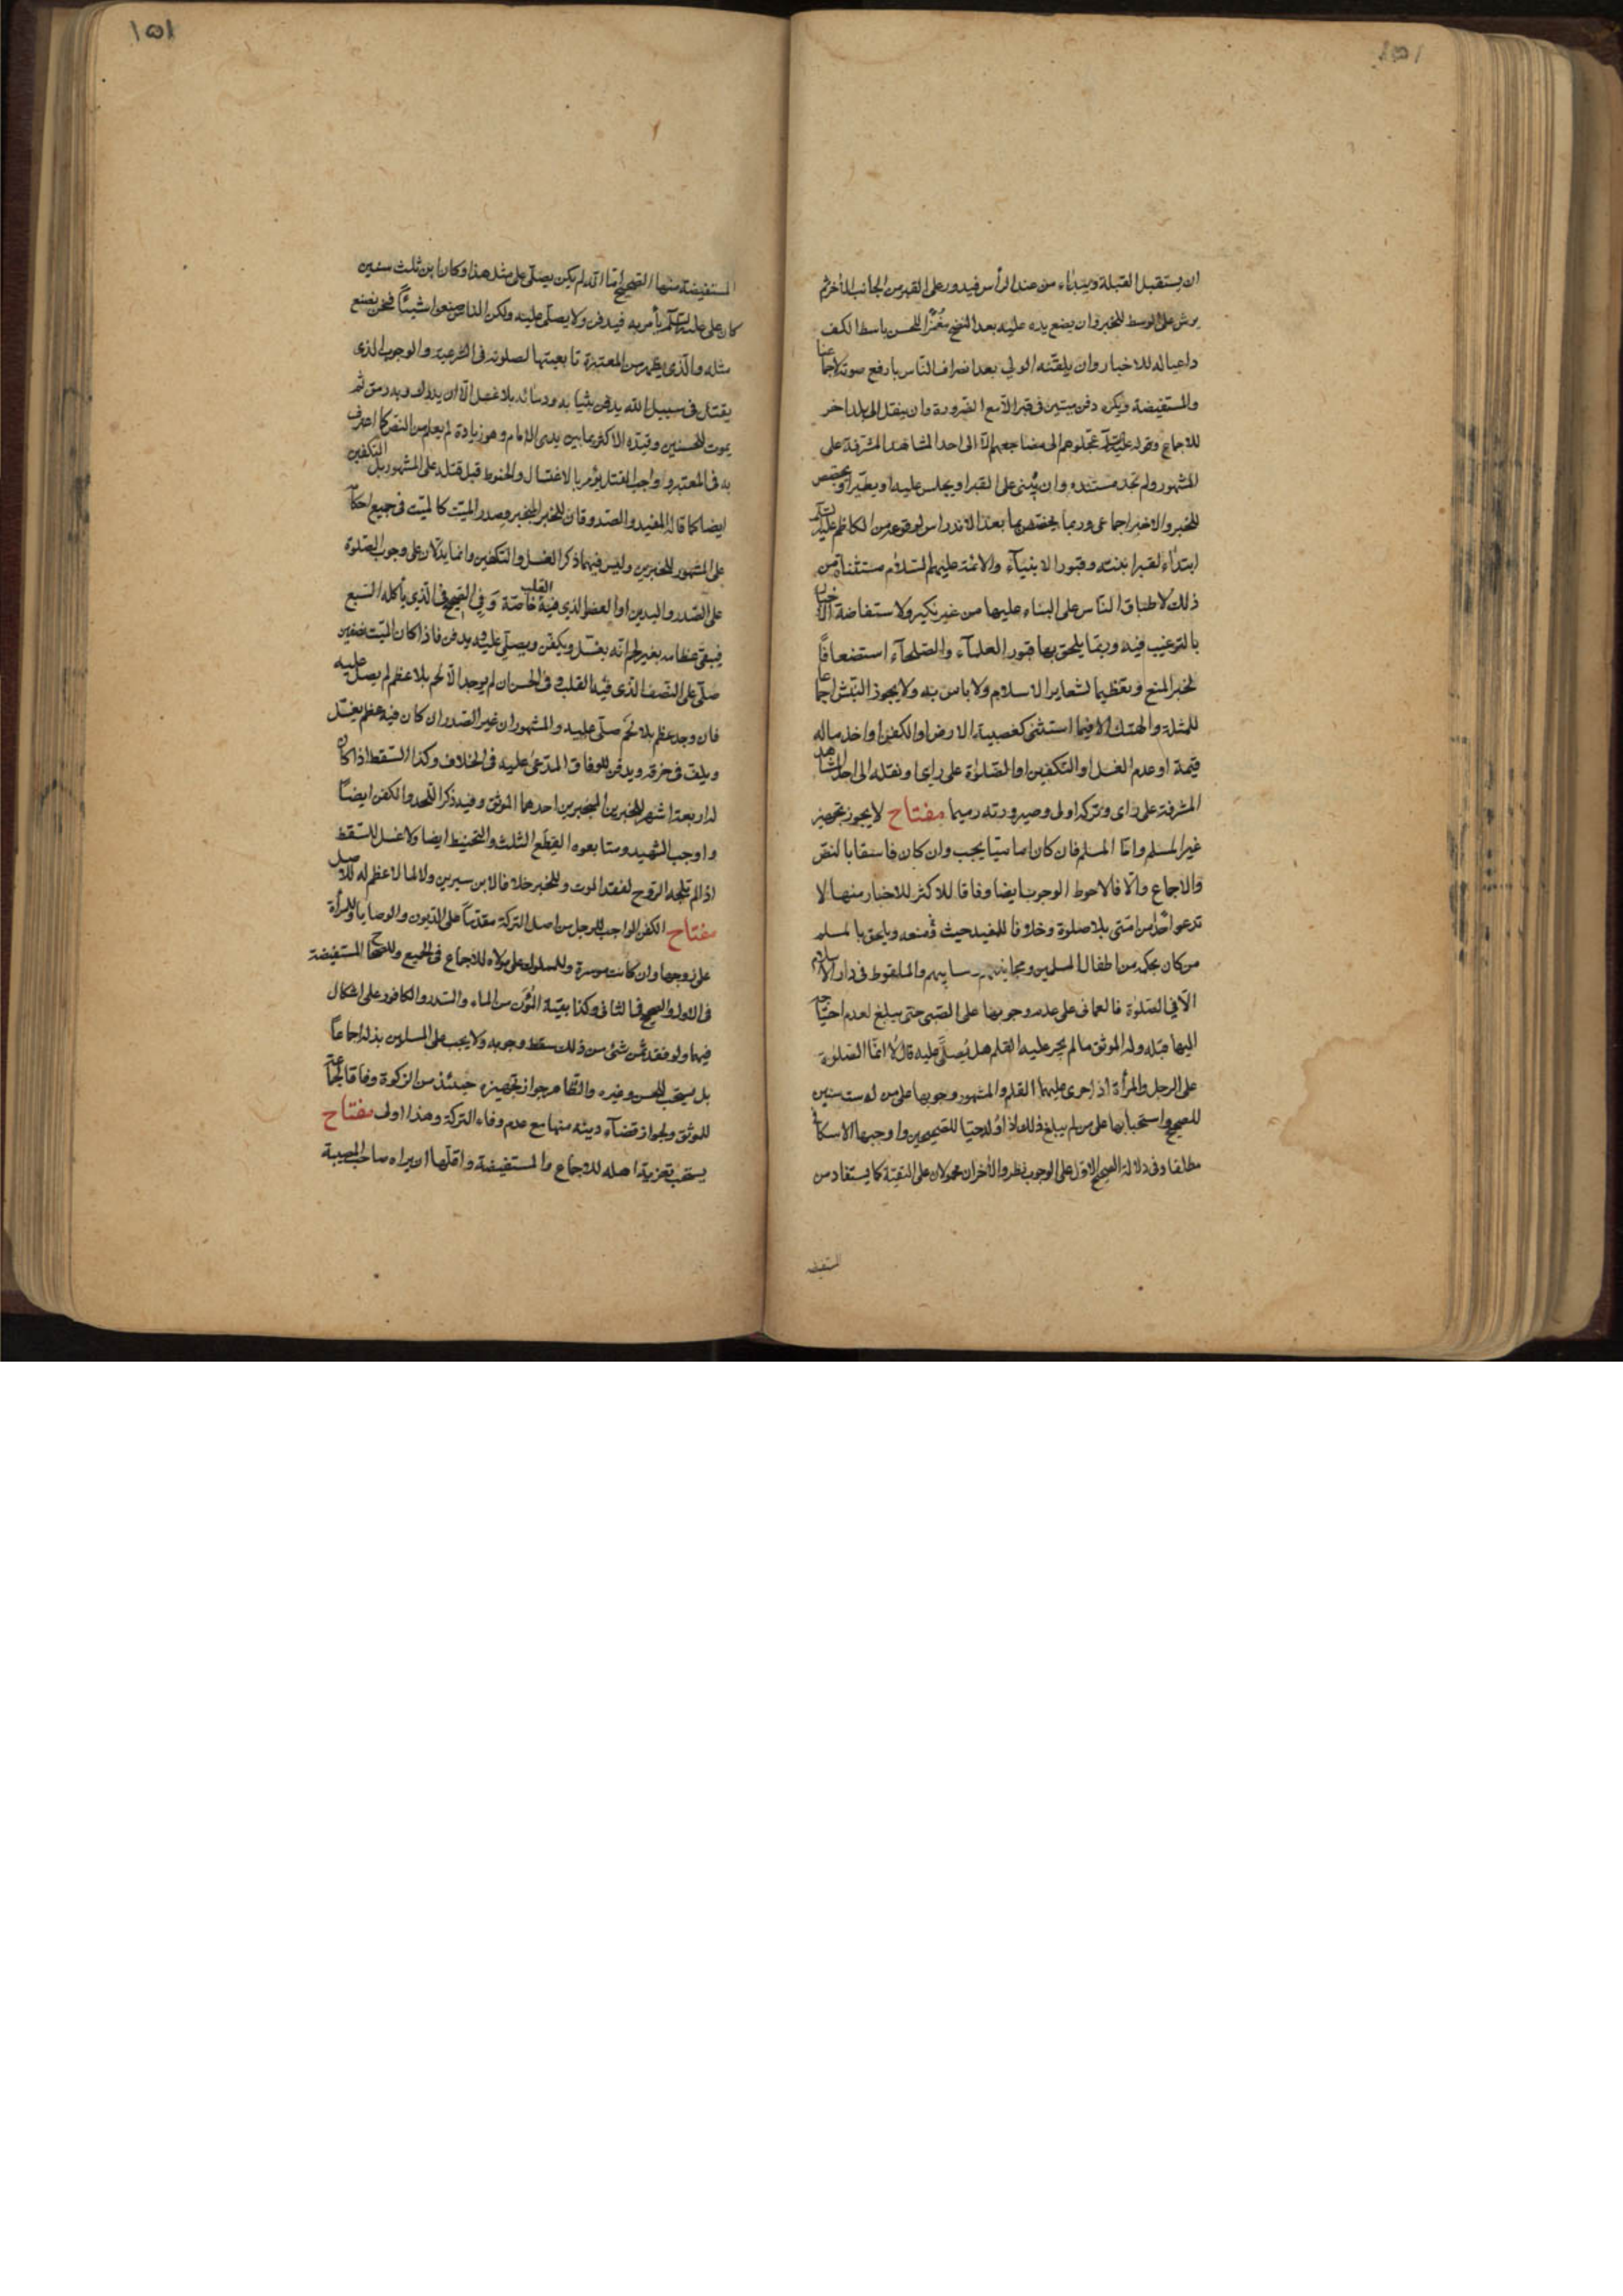 ١٥١
ان يستقبل القبلة ويبتداء من عند الرأس فيدور على القبر من الجانب الاخر ثم
يرش على الوسط للخبر وان يضع يده عليه بعد النضح مُغمزا للحسن باسط الكف
داعيا له للاخبار وان يلقنه الولي بعد انصراف الناس بارفع صوته اجماعا
والمستفيضة ويكره دفن ميتين في قبر الا مع الضرورة وان ينقل الى بلد اخر
للاجماع وقوله عليه السلم عجلوهم الى مضاجعهم الا الى احد المشاهد المشرفة على
المشهور ولم نجد مستنده وان يُبنى على القبر او يجلس عليه او يجصص
للخبر والاخير اجماعى وربما يختص بما بعد الاندراس لوقوعه من الكاظم عليه السلم
ابتداء لقبر ابنته وقبور الانبياء والائمة عليهم السلام مستثناة من
ذلك لاطباق الناس على البناء عليها من غير نكير ولاستفاضة الاخبار
بالترغيب فيه وربما يلحق بها قبور العلمآء والصلحآء استضعافا
لخبر المنع وتعظيما لشعاير الاسلام ولا باس به ولا يجوز النبش اجماعا
للمثلة والهتك الا فيما استثنى كغصبية الارض او الكفن او اخذ ماله
قيمة او عدم الغسل او التكفين او الصلوة على راى او نقله الى احد المشاهد
المشرفة على راى وتركه اولى وصيرورته رميما مفتاح لا يجوز تجهيز
غير المسلم واما المسلم فان كان اماميا يجب وان كان فاسقا بالنص
والاجماع والا فالاحوط الوجوب ايضا وفاقا للاكثر للاخبار منها لا
تدعوا احدا من امتى بلا صلوة وخلافا للمفيد حيث منعه ويلحق بالمسلم
من كان بحكمه من اطفال المسلمين ومجانينهم والملقوط فى دار الاسلام
الا في الصلوة فالعمانى على عدم وجوبها على الصبى حتى يبلغ لعدم احتياجه
اليها قبله وله الموثق ما لم يجر عليه القلم هل يُصلى عليه قال لا انما الصلوة
على الرجل والمرأة اذا جرى عليهما القلم والمشهور وجوبها على من له ست سنين
للصحيح واستحبابها على من لم يبلغ ذلك اذا وُلد حيا للصحيحين واوجبها الاسكافى
مطلقا وفى دلالة الصحيح الاول على الوجوب نظر والاخران محمولان على التقية كما يستفاد من
المستفيضة
١٥١
المستفيضة منها الصحيح اما انه لم يكن يصلى على مثل هذا وكان ابن ثلث سنين
كان على عليه السلم يأمر به فيدفن ولا يصلى عليه ولكن الناس صنعوا شيئاً فنحن نصنع
مثله والذى يظهر من المعتبرة تابعيتها لصلوته فى الشرعية والوجوب الذى
يقتل فى سبيل الله يدفن بثيابه ودمائه بلا غسل الا ان يدرك وبه رمق ثم
يموت للحسنين وقيده الاكثر بما بين يدى الامام وهو زيادة لم يعلم من النص كما اعترف
به فى المعتبر وواجب القتل يؤمر بالاغتسال والحنوط قبل قتله على المشهور بل التكفين
ايضا كما قاله المفيد والصدوقان للخبر المنجبر وصدر الميت كالميت فى جميع احكامه
على المشهور للخبرين وليس فيهما ذكر الغسل والتكفين وانما يدلان على وجوب الصلوة
على الصدر واليدين او العضو الذي فيه القلب خاصة وفي الصحيح فى الذي يأكله السبع
فيبقى عظامه بغير لحم انه يغسل ويكفن ويصلى عليه ويدفن فاذا كان الميت نصفين
صلى على النصف الذى فيه القلب وفى الحسن ان لم يوجد الا لحم بلا عظم لم يصل عليه
فان وجد عظم بلا لحم صلى عليه والمشهور ان غير الصدر ان كان فيه عظم يغسل
ويلف فى خرقة ويدفن للوفاق المدعى عليه فى الخلاف وكذا السقط اذا كان
له اربعة اشهر للخبرين المنجبرين احدهما الموثق وفيه ذكر اللحد والكفن ايضاً
واوجب الشهيد ومتابعوه القِطَع الثلث والتحنيط ايضا ولا غسل للسقط
اذا لم تلجه الروح لفقد الموت وللخبر خلافا لابن سيرين ولا لما لا عظم له للاصل
مفتاح الكفن الواجب للرجل من اصل التركة مقدماً على الديون والوصايا وللمرأة
على زوجها وان كانت موسرة وللمملوك على مولاه للاجماع فى الجميع وللصحاح المستفيضة
فى الاول والصحيح فى الثانى وكذا بقية المُؤَن من الماء والسدر والكافور على اشكال
فيهما ولو فقد ثمن شئ من ذلك سقط وجوبه ولا يجب على المسلمين بذله اجماعاً
بل يستحب للحسن وغيره والظاهر جواز تجهيزه حينئذ من الزكوة وفاقا لجماعة
للموثق ولجواز قضآء دينه منها مع عدم وفاء التركة وهذا اولى مفتاح
يستحب تعزية اهله للاجماع والمستفيضة واقلها ان يراه صاحب المصيبة